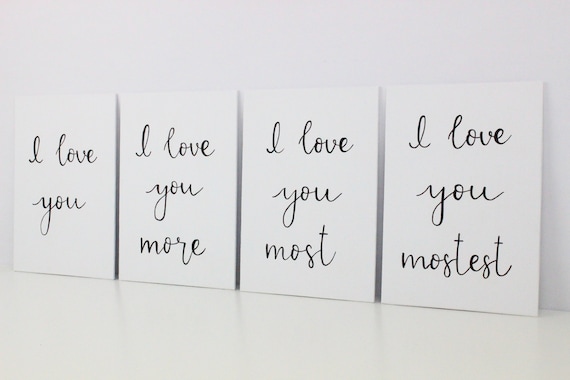 I love
you
I love
you
more
I love
you
most
I love
you
mostest